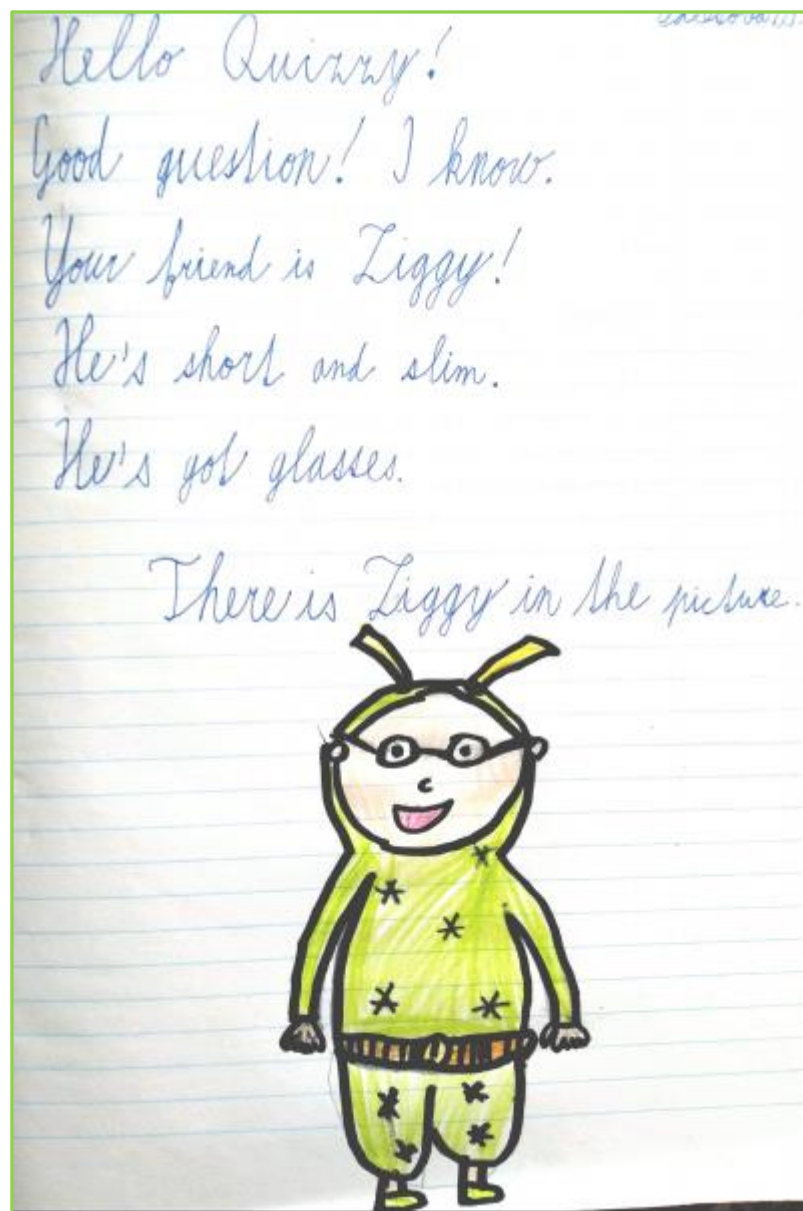 Hello Quizzy!
Good question! I know.
Your friend is Ziggy!
He's short and slim.
He's got glasses.
There is Ziggy in the picture.